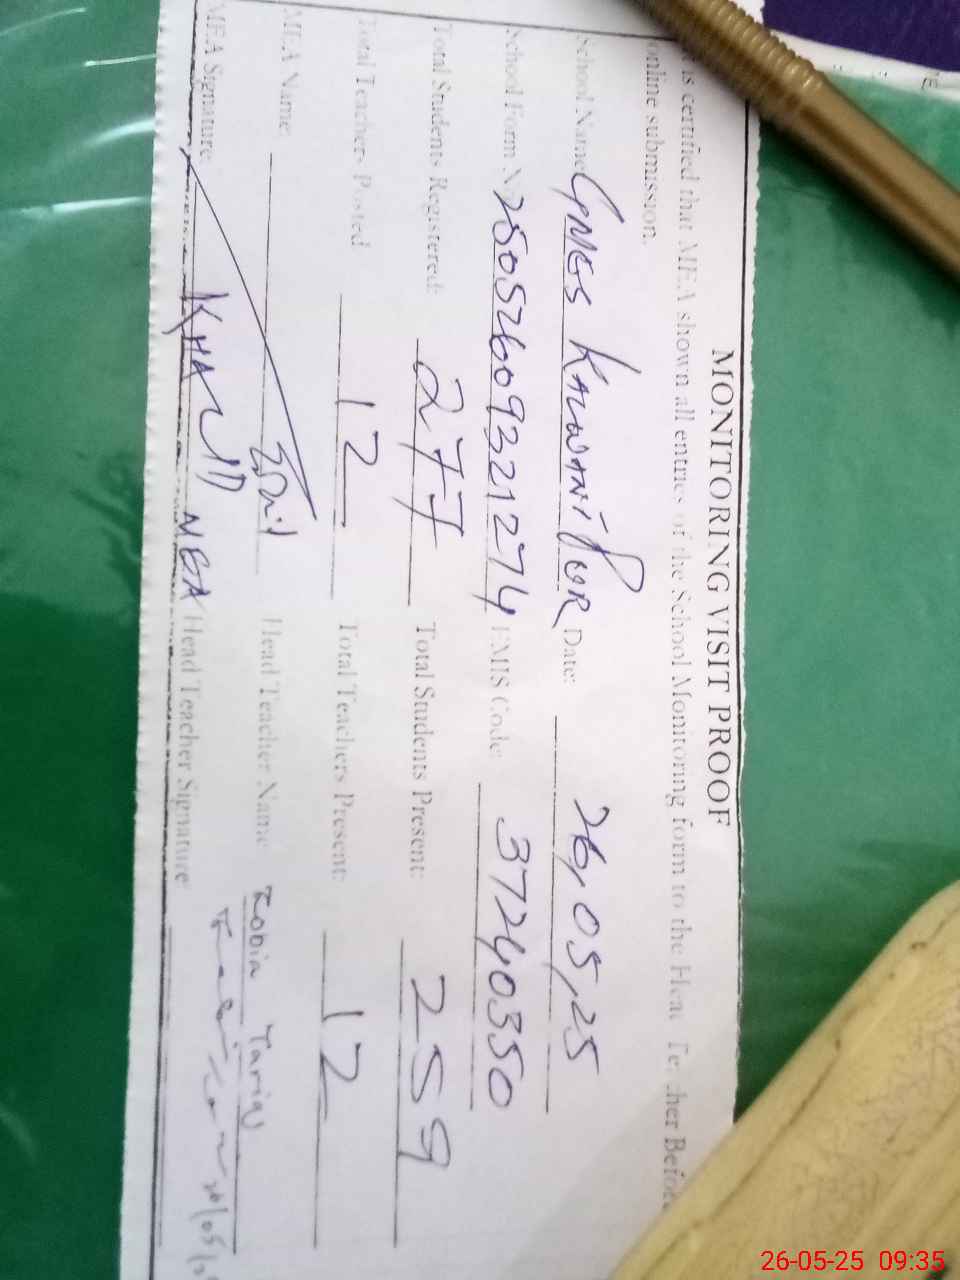 MONITORING VISIT PROOF
is certified that MEA shown all entries of the School Monitoring form to the Head Teacher Before
online submission.
School Name: GMES KALWANIPUR Date: 26,05,25
School Form No 25052609321274 EMIS Code: 37240350
Total Students Registered: 277 Total Students Present: 259
Total Teachers Posted 12 Total Teachers Present: 12
MEA Name: Head Teacher Name Robia Tariq
MEA Signature: KHALID MEA Head Teacher Signature:
26-05-25 09:35